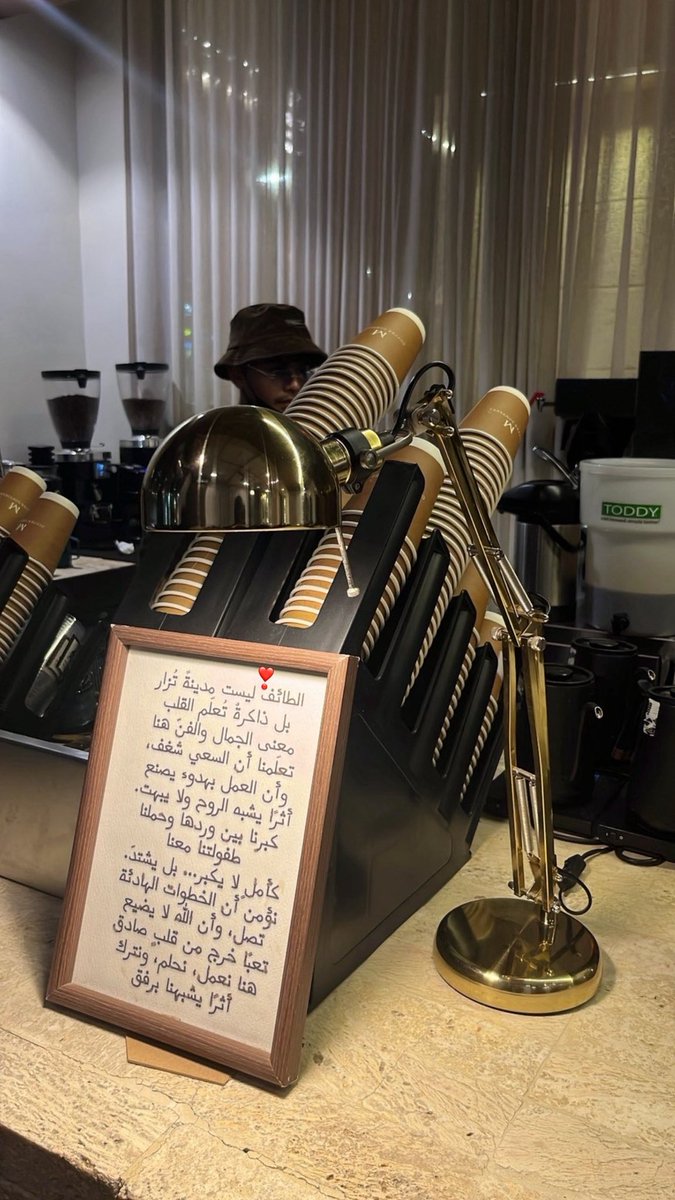 الطائف ليست مدينةً تُزار
بل ذاكرةٌ تُعلّم القلب
معنى الجمال والفنّ هنا
تعلّمنا أن السعي شغف،
وأن العمل بهدوء يصنع
أثرًا يشبه الروح ولا يبهت.
كبرنا بين وردها وحملنا
طفولتنا معنا
كأملٍ لا يكبر... بل يشتدّ.
نؤمن أن الخطوات الهادئة
تصل، وأن الله لا يضيع
تعبًا خرج من قلبٍ صادق
هنا نعمل، نحلم، ونترك
أثرًا يشبهنا برفق
TODDY
M
M